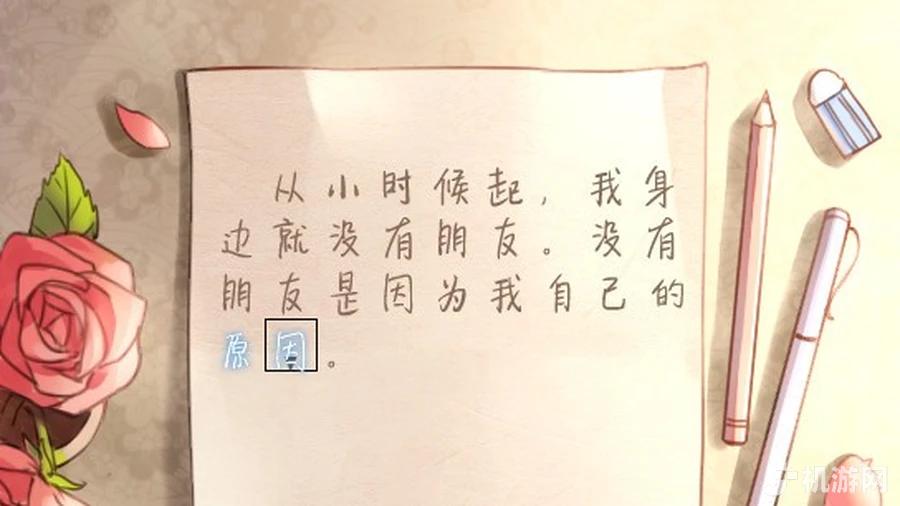 从小时候起，我身
边就没有朋友。没有
朋友是因为我自己的
原因。
机游网